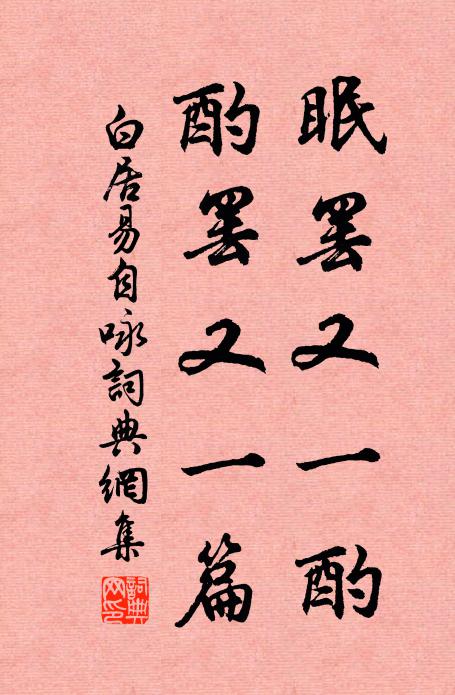 眠罢又一酌
酌罢又一篇
白居易自咏詞典網集
詞典网印